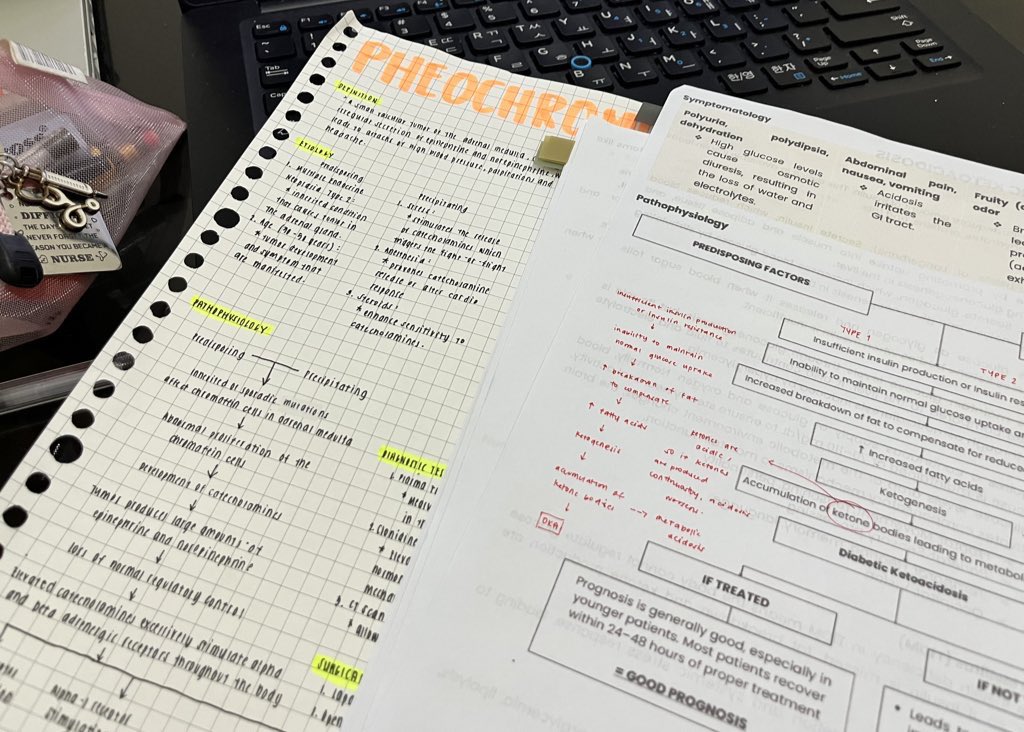 PHEOCHROM
DEFINITION
* A small vascular tumor of the adrenal medulla,
irregular secretion of epinephrine and norepinephrine,
leads to attacks of high blood pressure, palpitations and
headache.
ETIOLOGY
Predisposing
1. Multiple Endocrine
Neoplasia Type 2:
* inherited condition
that causes tumor in
the adrenal gland.
2. Age
* tumor development
and symptoms that
are manifested.
Precipitating
1. Stress:
* stimulates the release
of catecholamines which
triggers the fight or flight
2. Anesthesia:
* provokes catecholamine
release or alter cardio
response
3. Steroids:
* enhance sensitivity to
catecholamines.
PATHOPHYSIOLOGY
Predisposing
Precipitating
Inherited or sporadic mutations
affect chromaffin cells in adrenal medulla
↓
Abnormal proliferation of the
chromaffin cells
↓
Development of catecholamines
↓
Tumor produces large amounts of
epinephrine and norepinephrine
↓
Loss of normal regulatory control
↓
Elevated catecholamines excessively stimulate alpha
and beta adrenergic receptors throughout the body
Alpha-1 receptor
stimulation
DIAGNOSTIC TES
1. Plasma
2. Clonidine
* Elev
3. CT Scan
* Allow
SURGICAL
1. Lapa
2. Open
Symptomatology
Polyuria, polydipsia,
dehydration
❖ High glucose levels
cause osmotic
diuresis, resulting in
the loss of water and
electrolytes.
Abdominal pain,
nausea, vomiting
❖ Acidosis
irritates the
GI tract.
Fruity
odor
Pathophysiology
PREDISPOSING FACTORS
insufficient insulin production
or insulin resistance
↓
inability to maintain
normal glucose uptake
↓
↑ breakdown of fat
to compensate
↓
↑ fatty acids
↓
ketogenesis
↓
accumulation of
ketone bodies --→ metabolic
acidosis
↓
DKA
ketones are
acidic!
so if ketones
are produced
continuously, acidosis
worsens.
TYPE 1
TYPE 2
Insufficient insulin production or insulin res
Inability to maintain normal glucose uptake
Increased breakdown of fat to compensate for reduce
↑ Increased fatty acids
Ketogenesis
Accumulation of ketone bodies leading to metabol
Diabetic Ketoacidosis
IF TREATED
Prognosis is generally good, especially in
younger patients. Most patients recover
within 24-48 hours of proper treatment
= GOOD PROGNOSIS
IF NOT
• Leads
DIFFI
THE DAY
NEVER FORGET THE
REASON YOU BECAME
NURSE
Esc
Tab
한/영
한자
Shift
Page Up
Page Down
Home
End